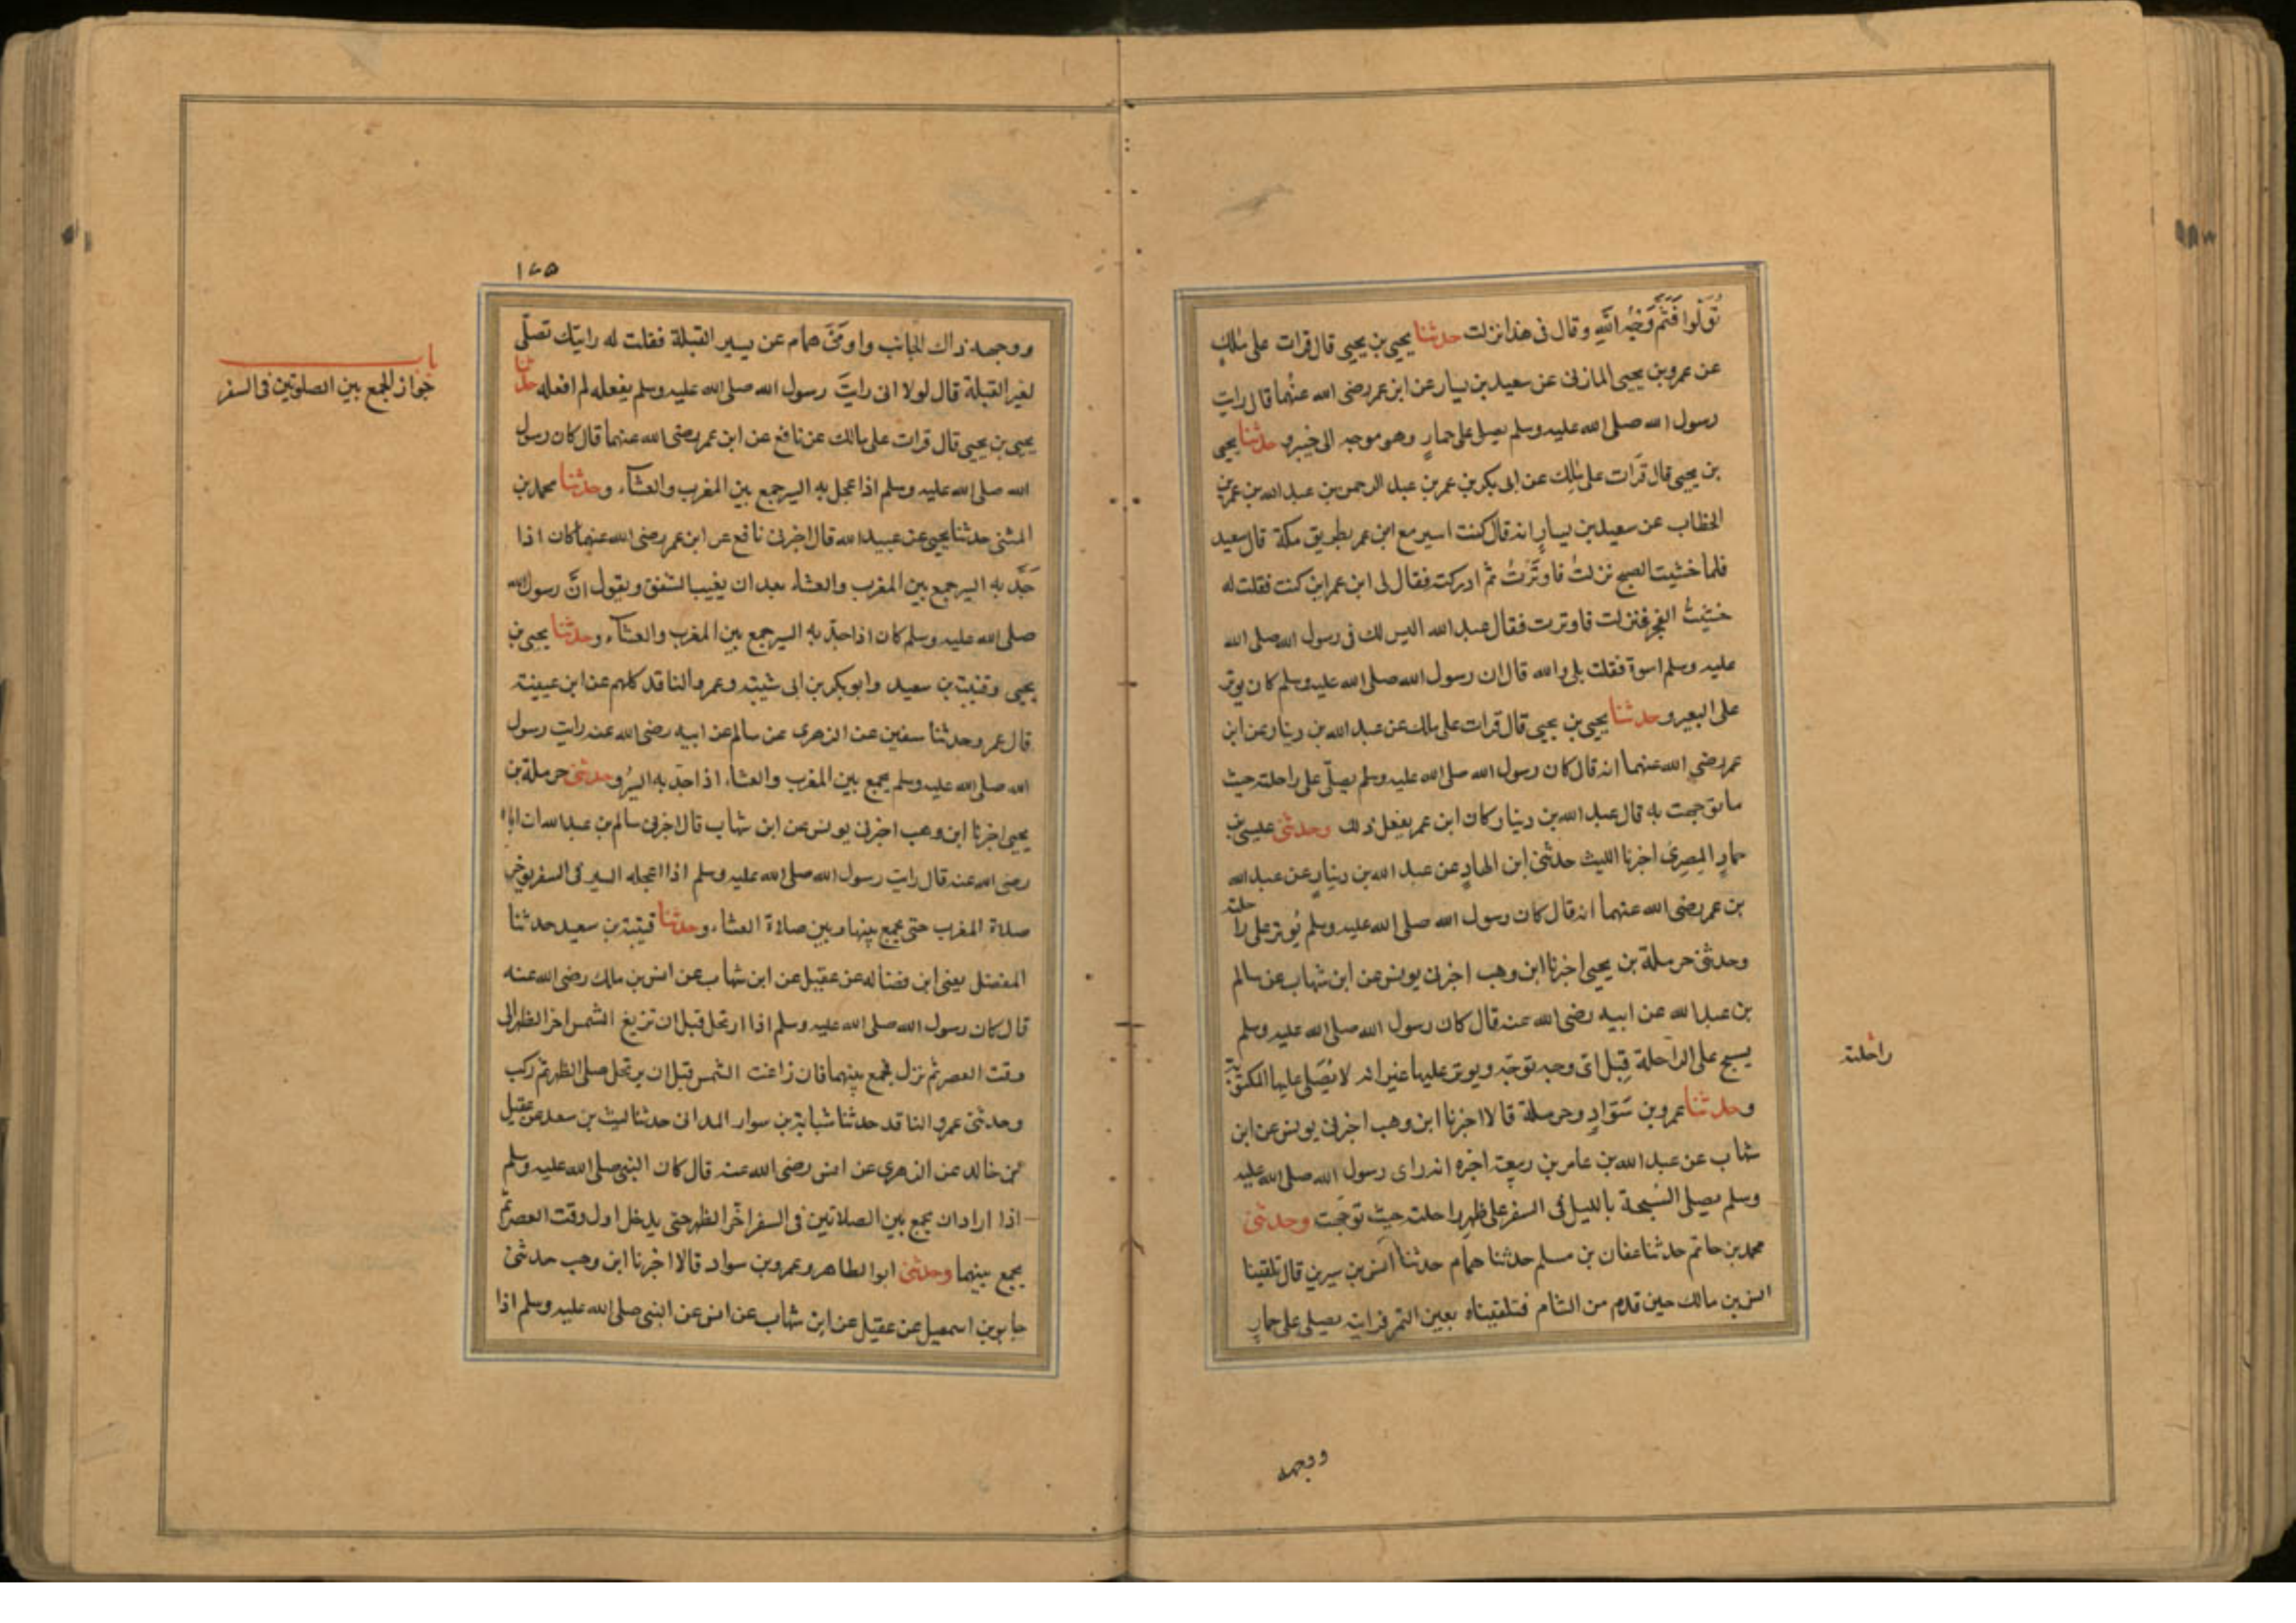 تُوَلُّوا فَثَمَّ وَجْهُ اللهِ وقال فى هذا نزلت حدثنا يحيى بن يحيى قال قرات على مالك
عن عمرو بن يحيى المازنى عن سعيد بن يسار عن ابن عمر رضى الله عنهما قال رايت
رسول الله صلى الله عليه وسلم يصلى على حمارٍ وهو موجه الى خيبر وحدثنا يحيى
بن يحيى قال قرات على مالك عن ابى بكر بن عمر بن عبد الرحمن بن عبد الله بن عمر بن
الخطاب عن سعيد بن يسارٍ انه قال كنت اسير مع ابن عمر بطريق مكة قال سعيد
فلما خشيت الصبح نزلتُ فاوتَرْتُ ثم ادركته فقال لى ابن عمر اين كنت فقلت له
خشيتُ الفجر فنزلت فاوترت فقال عبد الله اليس لك فى رسول الله صلى الله
عليه وسلم اسوة فقلت بلى والله قال ان رسول الله صلى الله عليه وسلم كان يوتر
على البعير وحدثنا يحيى بن يحيى قال قرات على مالك عن عبد الله بن دينار عن ابن
عمر رضى الله عنهما انه قال كان رسول الله صلى الله عليه وسلم يصلّى على راحلته حيث
ما توجهت به قال عبد الله بن دينار كان ابن عمر يفعل ذلك وحدثنى عيسى بن
حمادٍ المصرى اخبرنا الليث حدثنى ابن الهادِ عن عبد الله بن دينارٍ عن عبد الله
بن عمر رضى الله عنهما انه قال كان رسول الله صلى الله عليه وسلم يُوتر على راحلته
وحدثنى حرملة بن يحيى اخبرنا ابن وهب اخبرنى يونس عن ابن شهاب عن سالم
بن عبد الله عن ابيه رضى الله عنه قال كان رسول الله صلى الله عليه وسلم
يسبح على الراحلة قِبَل اىّ وجه توجّه ويوتر عليها غير انه لا يُصَلى عليها المكتوبة
وحدثنا عمرو بن سَوّادٍ وحرملة قالا اخبرنا ابن وهب اخبرنى يونس عن ابن
شهاب عن عبد الله بن عامر بن ربيعة اخبره انه راى رسول الله صلى الله عليه
وسلم يصلى السُّبحة بالليل فى السفر على ظهر راحلته حيث توجّهت وحدثنى
محمد بن حاتم حدثنا عفان بن مسلم حدثنا همام حدثنا انس بن سيرين قال تلقينا
انس بن مالك حين قدم من الشام فتلقيناه بعين التمر فرايته يصلى على حمارٍ
راحلته
ووجهه
١٧٥
ووجهه ذاك الجانب واومَىٰ همام عن يسير القبلة فقلت له رايتك تصلّى
لغير القبلة قال لولا انى رايتَ رسول الله صلى الله عليه وسلم يفعله لم افعله حدثنا
يحيى بن يحيى قال قرات على مالك عن نافع عن ابن عمر رضى الله عنهما قال كان رسول
الله صلى الله عليه وسلم اذا عجل به السير جمع بين المغرب والعشاء وحدثنا محمد بن
المثنى حدثنا يحيى عن عبيد الله قال اخبرنى نافع عن ابن عمر رضى الله عنهما كان اذا
جَدَّ به السير جمع بين المغرب والعشاء بعد ان يغيب الشفق ويقول انَّ رسول الله
صلى الله عليه وسلم كان اذا جدّ به السير جمع بين المغرب والعشاء وحدثنا يحيى بن
يحيى وقتيبة بن سعيد وابو بكر بن ابى شيبة وعمرو الناقد كلهم عن ابن عيينة
قال عمرو حدثنا سفين عن الزهرى عن سالم عن ابيه رضى الله عنه رايت رسول
الله صلى الله عليه وسلم يجمع بين المغرب والعشاء اذا جدّ به السيرُ وحدثنى حرملة بن
يحيى اخبرنا ابن وهب اخبرنى يونس عن ابن شهاب قال اخبرنى سالم بن عبد الله ان اباه
رضى الله عنه قال رايت رسول الله صلى الله عليه وسلم اذا اعجله السير فى السفر يؤخر
صلاة المغرب حتى يجمع بينها وبين صلاة العشاء وحدثنا قتيبة بن سعيد حدثنا
المفضل يعنى ابن فضالة عن عقيل عن ابن شهاب عن انس بن مالك رضى الله عنه
قال كان رسول الله صلى الله عليه وسلم اذا ارتحل قبل ان تزيغ الشمس اخر الظهر الى
وقت العصر ثم نزل فجمع بينهما فان زاغت الشمس قبل ان يرتحل صلى الظهر ثم ركب
وحدثنى عمرو الناقد حدثنا شبابة بن سوار المداينى حدثنا ليث بن سعد عن عقيل
بن خالد عن الزهرى عن انس رضى الله عنه قال كان النبى صلى الله عليه وسلم
اذا اراد ان يجمع بين الصلاتين فى السفر اخّر الظهر حتى يدخل اول وقت العصر ثم
يجمع بينهما وحدثنى ابو الطاهر وعمرو بن سواد قالا اخبرنا ابن وهب حدثنى
جابر بن اسمعيل عن عقيل عن ابن شهاب عن انس عن النبى صلى الله عليه وسلم اذا
باب
جواز الجمع بين الصلوتين فى السفر